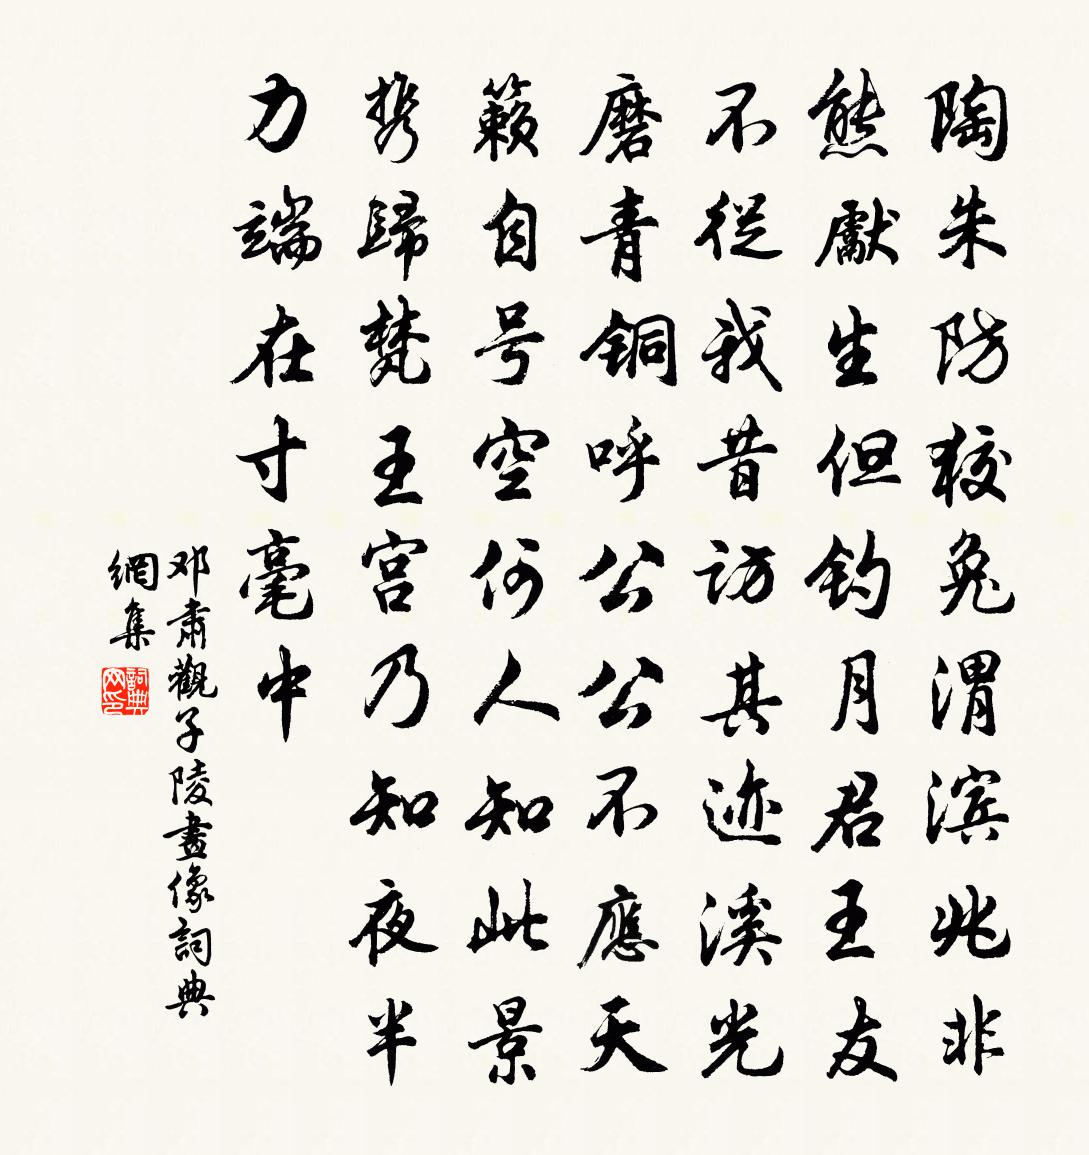 陶朱防狡兔渭滨兆非
熊獻生但钓月君王友
不從我昔访其迹溪光
磨青铜呼公公不應天
籁自号空何人知此景
携歸梵王宫乃知夜半
力端在寸毫中
邓肃觀子陵畫像詞典
網集
詞典网印